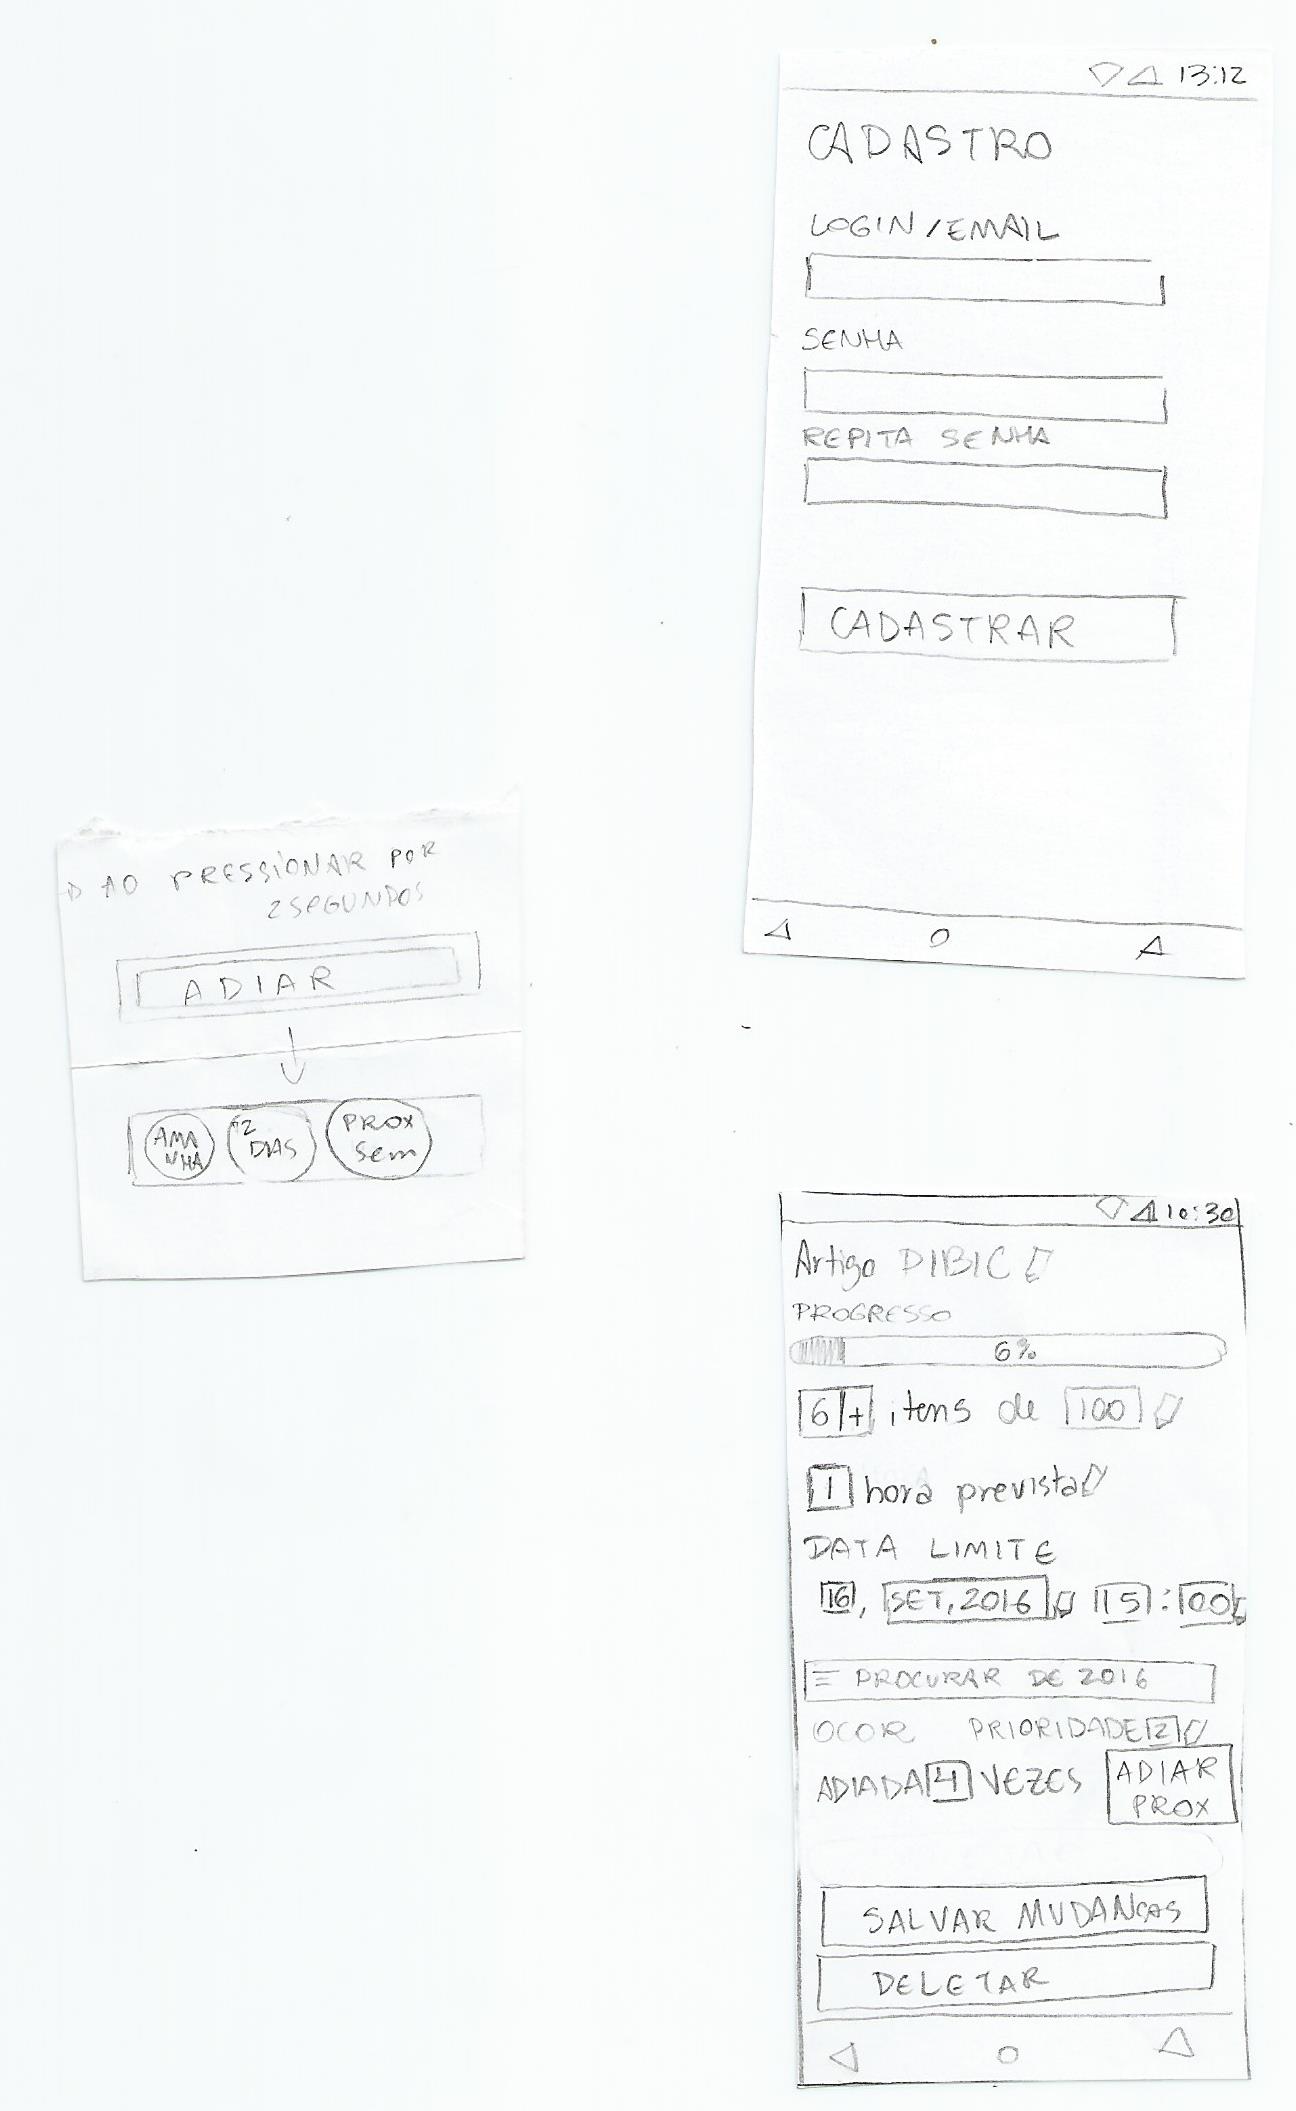 13:12
CADASTRO
LOGIN/EMAIL
SENHA
REPITA SENHA
CADASTRAR
AO PRESSIONAR POR
2 SEGUNDOS
ADIAR
AMA
NHA
DIAS
PROX
Sem
10:30
Artigo DIBIC
PROGRESSO
6%
6 + itens de 100
1 hora prevista
DATA LIMITE
16, SET, 2016 15:00
PROCURAR DE 2016
OCOR PRIORIDADE 2
ADIADA 4 VEZES
ADIAR
PROX
SALVAR MUDANÇAS
DELETAR